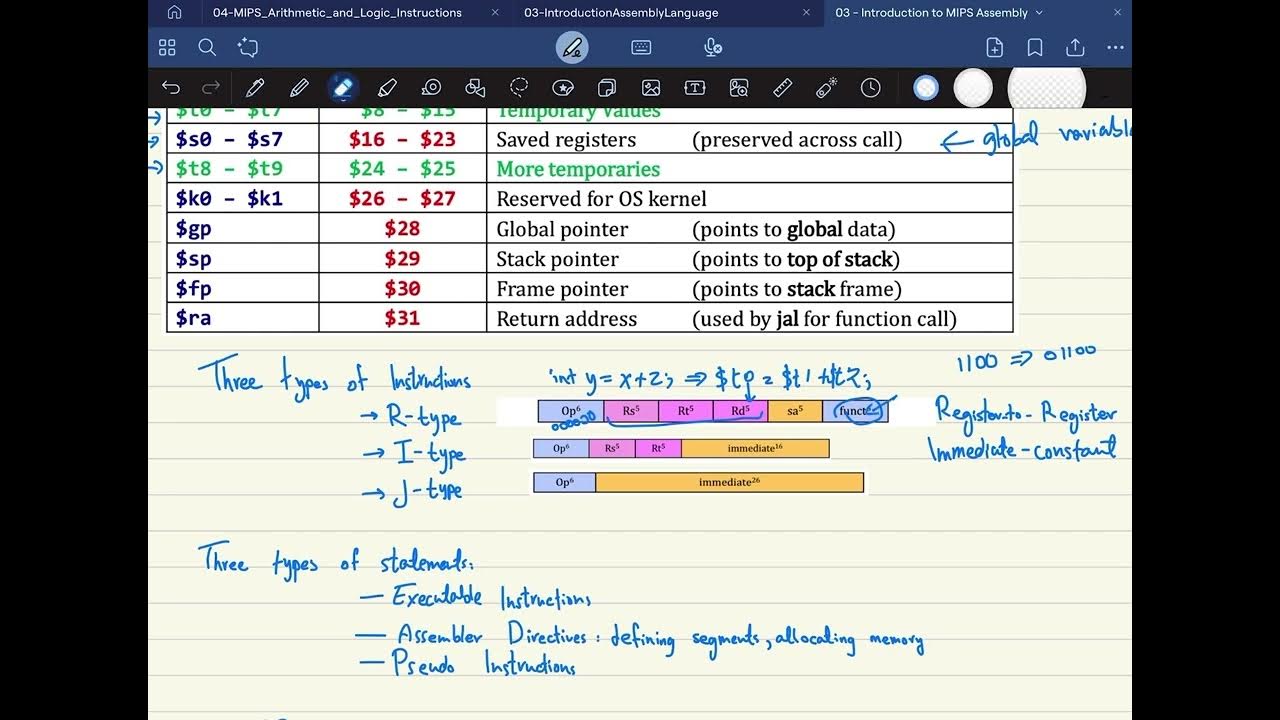 04-MIPS_Arithmetic_and_Logic_Instructions
03-IntroductionAssemblyLanguage
03 - Introduction to MIPS Assembly
$t0 – $t7 $8 – $15 Temporary Values
$s0 – $s7 $16 – $23 Saved registers (preserved across call) ← global variable
$t8 – $t9 $24 – $25 More temporaries
$k0 – $k1 $26 – $27 Reserved for OS kernel
$gp $28 Global pointer (points to global data)
$sp $29 Stack pointer (points to top of stack)
$fp $30 Frame pointer (points to stack frame)
$ra $31 Return address (used by jal for function call)
1100 ⇒ 01100
Three types of Instructions int y = x+z; ⇒ $t0 = $t1 + $t2;
→ R-type Op⁶ Rs⁵ Rt⁵ Rd⁵ sa⁵ funct⁶ Register-to-Register
000000
→ I-type Op⁶ Rs⁵ Rt⁵ immediate¹⁶ Immediate-constant
→ J-type Op⁶ immediate²⁶
Three types of statements:
— Executable Instructions
— Assembler Directives: defining segments, allocating memory
— Pseudo Instructions